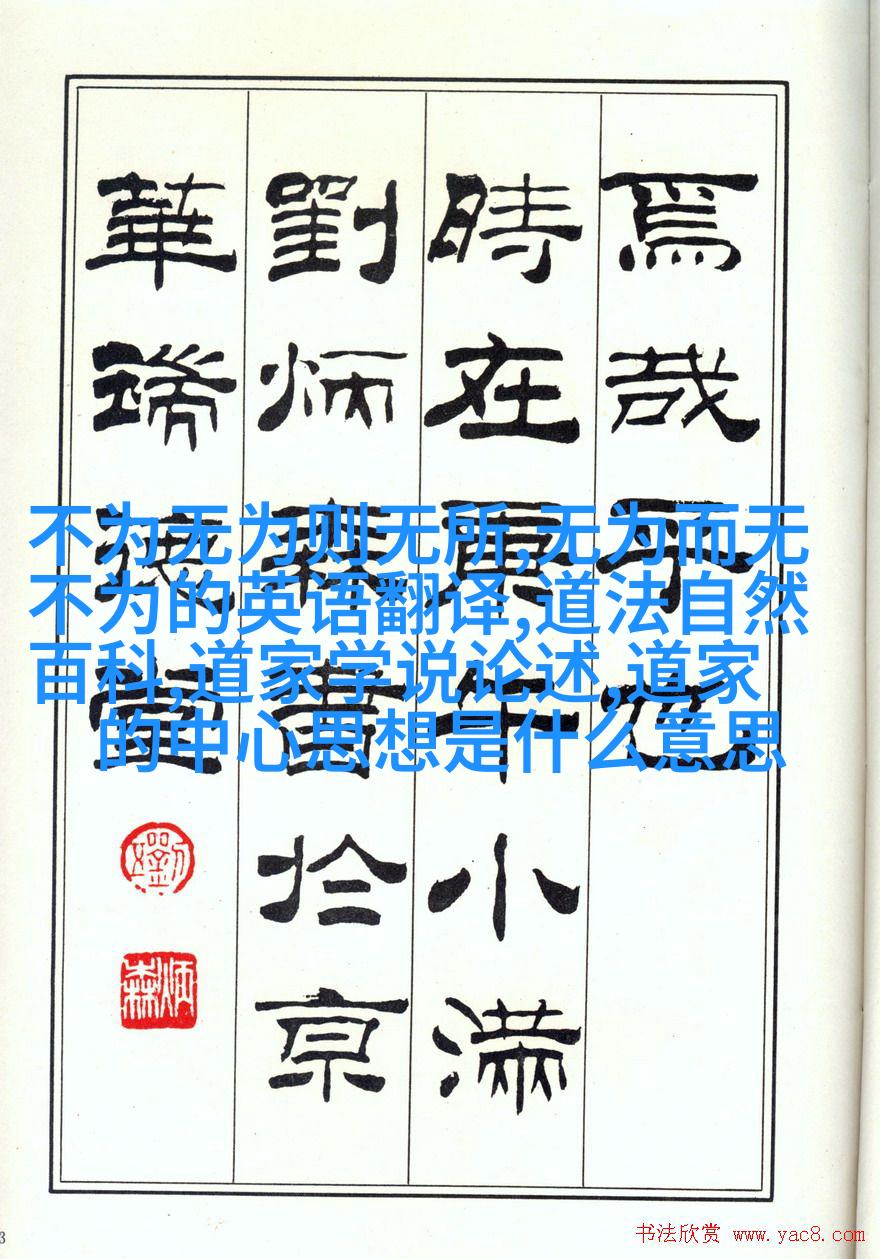 焉哉乎也
時在庚午小滿
劉炳森書於京
華堂
不为无为则无所,无为而无
不为的英语翻译,道法自然
百科,道家学说论述,道家
的中心思想是什么意思
劉
炳森
3
书法欣赏 www.yac8.com